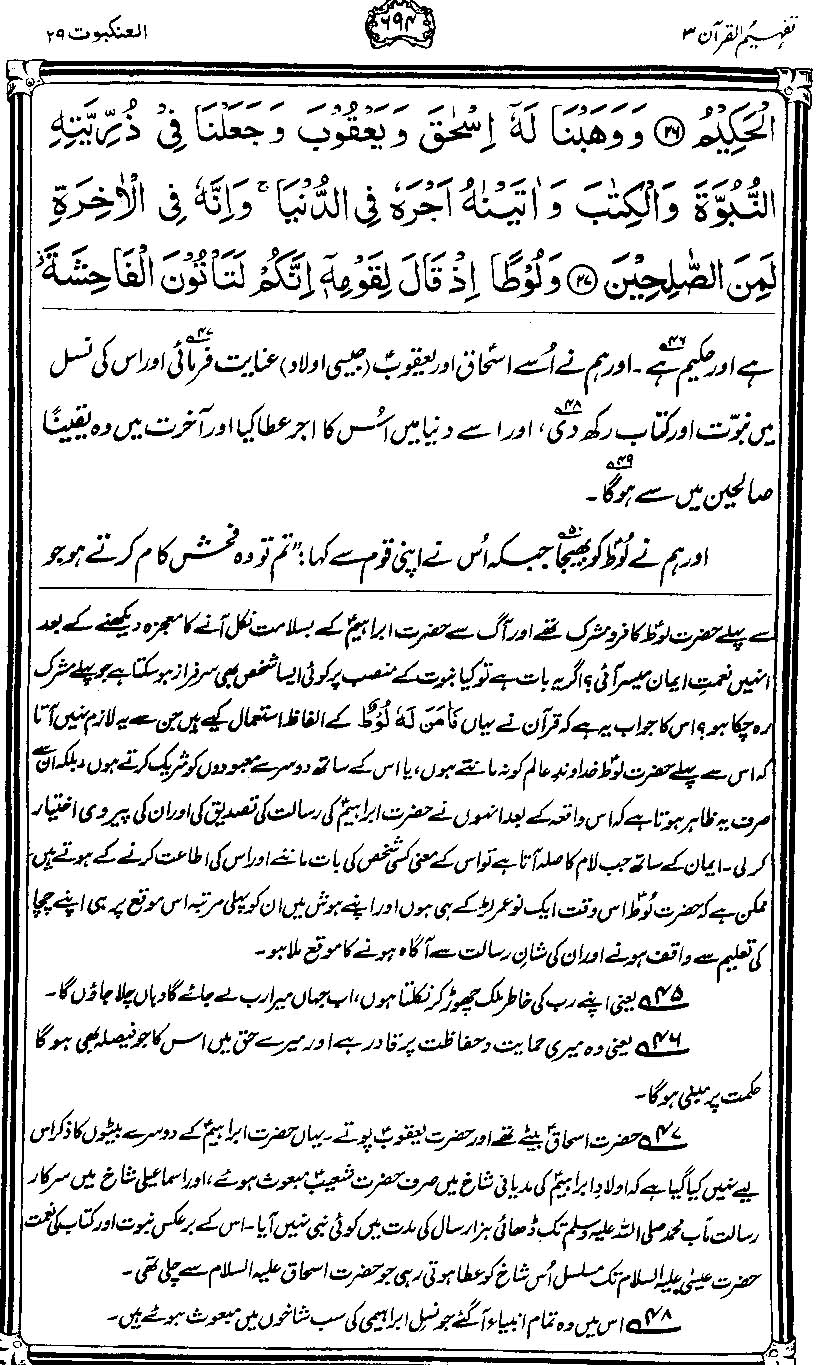 تفہیم القرآن ۳
۶۹۴
العنکبوت ۲۹
الْحَكِيْمُ ﴿۲۶﴾ وَوَهَبْنَا لَهٗٓ اِسْحٰقَ وَيَعْقُوْبَ وَجَعَلْنَا فِيْ ذُرِّيَّتِهِ
النُّبُوَّةَ وَالْكِتٰبَ وَاٰتَيْنٰهُ اَجْرَهٗ فِي الدُّنْيَا ۚ وَاِنَّهٗ فِي الْاٰخِرَةِ
لَمِنَ الصّٰلِحِيْنَ ﴿۲۷﴾ وَلُوْطًا اِذْ قَالَ لِقَوْمِهٖٓ اِنَّكُمْ لَتَاْتُوْنَ الْفَاحِشَةَ
ہے اور حکیم ہے۴۶۔ اور ہم نے اُسے اسحاق اور یعقوبؑ (جیسی اولاد) عنایت فرمائی۴۷ اور اس کی نسل
میں نبوّت اور کتاب رکھ دی۴۸، اور اسے دنیا میں اُس کا اجر عطا کیا اور آخرت میں وہ یقیناً
صالحین میں سے ہوگا۴۹۔
اور ہم نے لُوطؑ کو بھیجا۵۰ جبکہ اُس نے اپنی قوم سے کہا: ”تم تو وہ فحش کام کرتے ہو جو
سے پہلے حضرت لوطؑ کافر و مشرک تھے اور آگ سے حضرت ابراہیمؑ کے بسلامت نکل آنے کا معجزہ دیکھنے کے بعد
انہیں نعمتِ ایمان میسر آئی؟ اگر یہ بات ہے تو کیا نبوت کے منصب پر کوئی ایسا شخص بھی سرفراز ہو سکتا ہے جو پہلے مشرک
رہ چکا ہو؟ اس کا جواب یہ ہے کہ قرآن نے یہاں فَاٰمَنَ لَهٗ لُوْطٌ کے الفاظ استعمال کیے ہیں جن سے یہ لازم نہیں آتا
کہ اس سے پہلے حضرت لوطؑ خداوندِ عالم کو نہ مانتے ہوں، یا اس کے ساتھ دوسرے معبودوں کو شریک کرتے ہوں، بلکہ ان سے
صرف یہ ظاہر ہوتا ہے کہ اس واقعہ کے بعد انہوں نے حضرت ابراہیمؑ کی رسالت کی تصدیق کی اور ان کی پیروی اختیار
کر لی۔ ایمان کے ساتھ جب لام کا صلہ آتا ہے تو اس کے معنی کسی شخص کی بات ماننے اور اس کی اطاعت کرنے کے ہوتے ہیں
ممکن ہے کہ حضرت لُوطؑ اس وقت ایک نو عمر لڑکے ہی ہوں اور اپنے ہوش میں ان کو پہلی مرتبہ اس موقع پر ہی اپنے چچا
کی تعلیم سے واقف ہونے اور ان کی شانِ رسالت سے آگاہ ہونے کا موقع ملا ہو۔
۴۵ یعنی اپنے رب کی خاطر ملک چھوڑ کر نکلتا ہوں، اب جہاں میرا رب لے جائے گا وہاں چلا جاؤں گا۔
۴۶ یعنی وہ میری حمایت و حفاظت پر قادر ہے اور میرے حق میں اس کا جو فیصلہ بھی ہوگا
حکمت پر مبنی ہوگا۔
۴۷ حضرت اسحاقؑ بیٹے تھے اور حضرت یعقوبؑ پوتے۔ یہاں حضرت ابراہیمؑ کے دوسرے بیٹوں کا ذکر اس
لیے نہیں کیا گیا ہے کہ اولادِ ابراہیمؑ کی مدیانی شاخ میں صرف حضرت شعیبؑ مبعوث ہوئے، اور اسماعیلی شاخ میں سرکار
رسالت مآب محمد صلی اللہ علیہ وسلم تک ڈھائی ہزار سال کی مدت میں کوئی نبی نہیں آیا۔ اس کے برعکس نبوت اور کتاب کی نعمت
حضرت عیسیٰ علیہ السلام تک مسلسل اُس شاخ کو عطا ہوتی رہی جو حضرت اسحاق علیہ السلام سے چلی تھی۔
۴۸ اس میں وہ تمام انبیاء آ گئے جو نسلِ ابراہیمی کی سب شاخوں میں مبعوث ہوئے ہیں۔